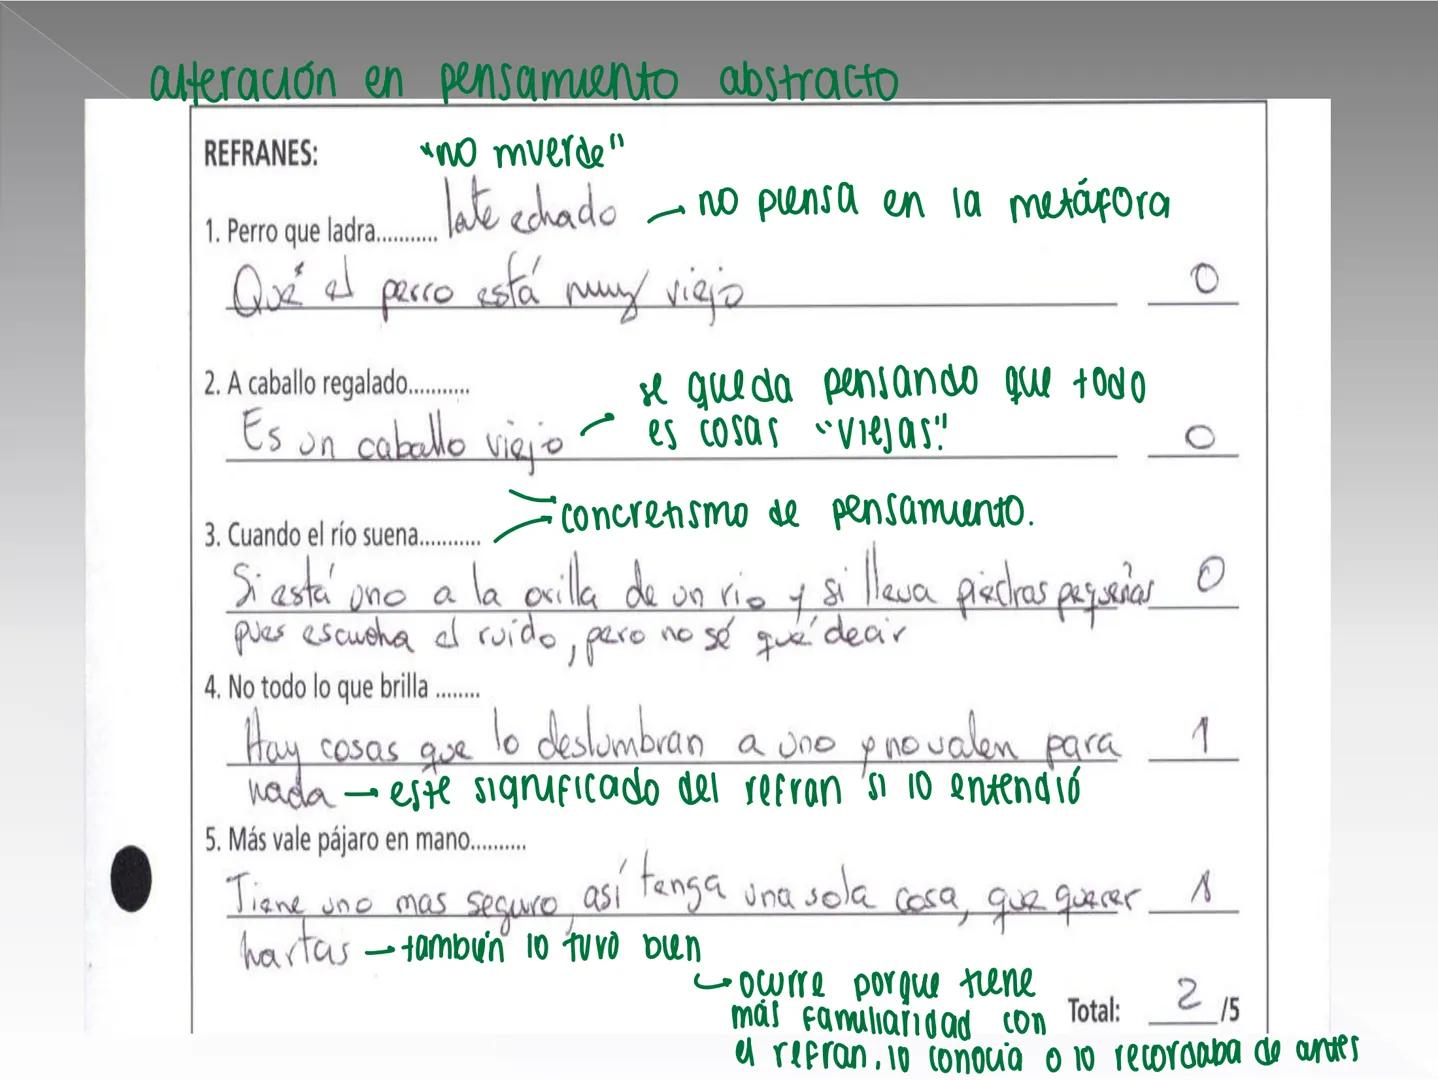 alteración en pensamiento abstracto
REFRANES:
"no muerde"
1. Perro que ladra........... late echado → no piensa en la metáfora
Qué el perro está muy viejo 0
2. A caballo regalado...........
se queda pensando que todo
es cosas "viejas".
Es un caballo viejo 0
concretismo de pensamiento.
3. Cuando el río suena...........
Si está uno a la orilla de un rio y si lleva piedras pequeñas 0
pues escucha el ruído, pero no sé qué decir
4. No todo lo que brilla ........
Hay cosas que lo deslumbran a uno y no valen para 1
nada → este significado del refran si lo entendió
5. Más vale pájaro en mano..........
Tiene uno mas seguro, así tenga una sola cosa, que querer 1
hartas → también lo tuvo bien
↳ ocurre porque tiene
más familiaridad con
el refran, lo conocia o lo recordaba de antes
Total: 2 /5